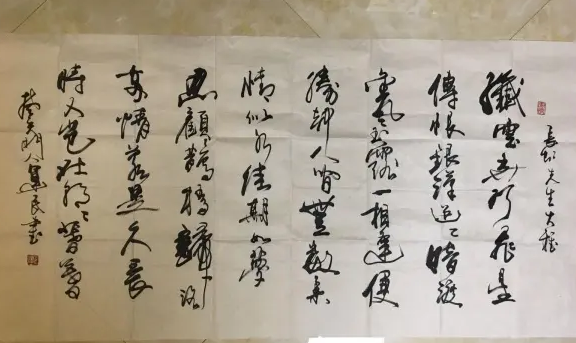 先生大雅
纖雲弄巧飛星
傳恨銀漢迢々暗渡
金風玉露一相逢便
勝却人間無數柔
情似水佳期如夢
忍顧鵲橋歸路
兩情若是久長
時又豈在朝々暮暮
人建民書